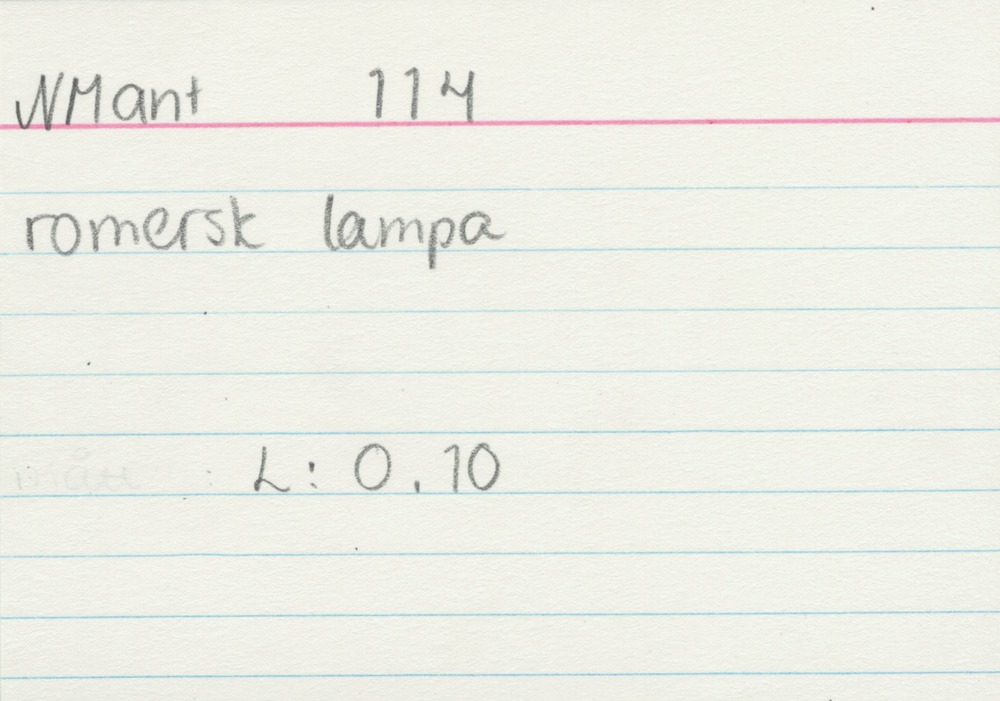 NMant 114
romersk lampa
mått : L: 0.10